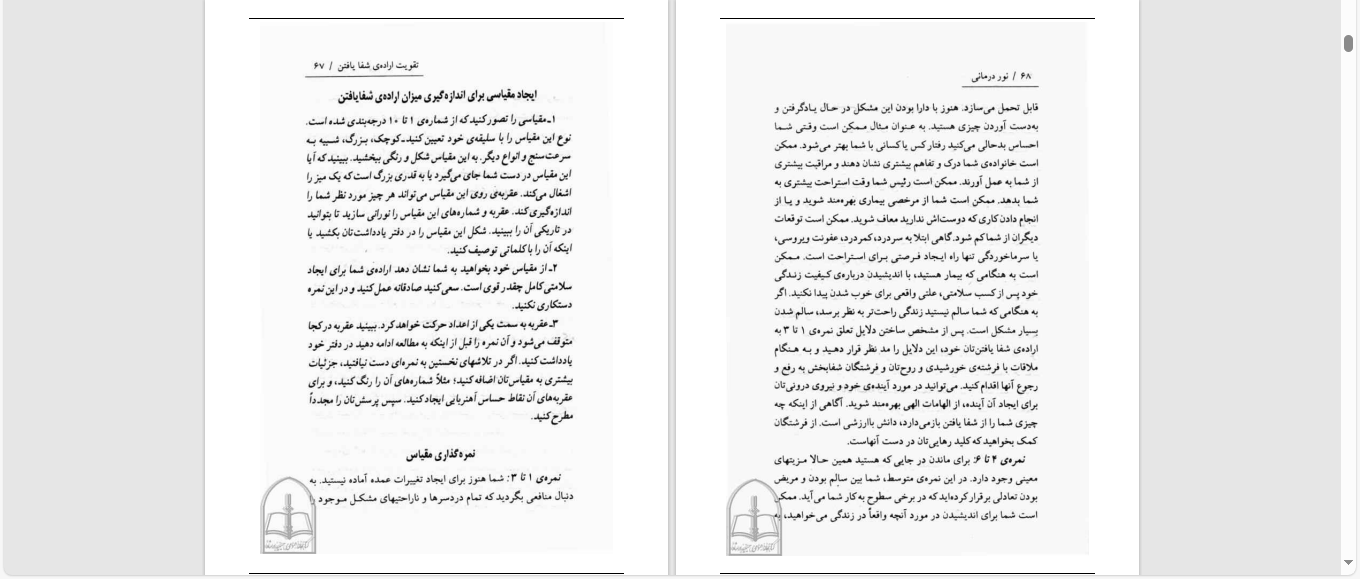 تقویت اراده‌ی شفا یافتن / ۶۷
ایجاد مقیاسی برای اندازه‌گیری میزان اراده‌ی شفایافتن
۱ـ مقیاسی را تصور کنید که از شماره‌ی ۱ تا ۱۰ درجه‌بندی شده است.
نوع این مقیاس را با سلیقه‌ی خود تعیین کنید ـ کوچک، بزرگ، شبیه به
سرعت‌سنج و انواع دیگر. به این مقیاس شکل و رنگی ببخشید. ببینید که آیا
این مقیاس در دست شما جای می‌گیرد یا به قدری بزرگ است که یک میز را
اشغال می‌کند. عقربه‌ی روی این مقیاس می‌تواند هر چیز مورد نظر شما را
اندازه‌گیری کند. عقربه و شماره‌های این مقیاس را نورانی سازید تا بتوانید
در تاریکی آن را ببینید. شکل این مقیاس را در دفتر یادداشت‌تان بکشید یا
اینکه آن را با کلماتی توصیف کنید.
۲ـ از مقیاس خود بخواهید به شما نشان دهد اراده‌ی شما برای ایجاد
سلامتی کامل چقدر قوی است. سعی کنید صادقانه عمل کنید و در این نمره
دستکاری نکنید.
۳ـ عقربه به سمت یکی از اعداد حرکت خواهد کرد. ببینید عقربه در کجا
متوقف می‌شود و آن نمره را قبل از اینکه به مطالعه ادامه دهید در دفتر خود
یادداشت کنید. اگر در تلاشهای نخستین به نمره‌ای دست نیافتید، جزئیات
بیشتری به مقیاس‌تان اضافه کنید؛ مثلاً شماره‌های آن را رنگ کنید، و برای
عقربه‌های آن نقاط حساس آهنربایی ایجاد کنید. سپس پرسش‌تان را مجدداً
مطرح کنید.
نمره‌گذاری مقیاس
نمره‌ی ۱ تا ۳: شما هنوز برای ایجاد تغییرات عمده آماده نیستید. به
دنبال منافعی بگردید که تمام دردسرها و ناراحتیهای مشکل موجود را
۶۸ / نور درمانی
قابل تحمل می‌سازد. هنوز با دارا بودن این مشکل در حال یادگرفتن و
به‌دست آوردن چیزی هستید. به عنوان مثال ممکن است وقتی شما
احساس بدحالی می‌کنید رفتار کس یا کسانی با شما بهتر می‌شود. ممکن
است خانواده‌ی شما درک و تفاهم بیشتری نشان دهند و مراقبت بیشتری
از شما به عمل آورند. ممکن است رئیس شما وقت استراحت بیشتری به
شما بدهد. ممکن است شما از مرخصی بیماری بهره‌مند شوید و یا از
انجام دادن کاری که دوست‌اش ندارید معاف شوید. ممکن است توقعات
دیگران از شما کم شود. گاهی ابتلا به سردرد، کمردرد، عفونت ویروسی،
یا سرماخوردگی تنها راه ایجاد فرصتی برای استراحت است. ممکن
است به هنگامی که بیمار هستید، با اندیشیدن درباره‌ی کیفیت زندگی
خود پس از کسب سلامتی، علتی واقعی برای خوب شدن پیدا نکنید. اگر
به هنگامی که شما سالم نیستید زندگی راحت‌تر به نظر برسد، سالم شدن
بسیار مشکل است. پس از مشخص ساختن دلایل تعلق نمره‌ی ۱ تا ۳ به
اراده‌ی شفا یافتن‌تان خود، این دلایل را مد نظر قرار دهید و به هنگام
ملاقات با فرشته‌ی خورشیدی و روح‌تان و فرشتگان شفابخش به رفع و
رجوع آنها اقدام کنید. می‌توانید در مورد آینده‌ی خود و نیروی درونی‌تان
برای ایجاد آن آینده، از الهامات الهی بهره‌مند شوید. آگاهی از اینکه چه
چیزی شما را از شفا یافتن بازمی‌دارد، دانش باارزشی است. از فرشتگان
کمک بخواهید که کلید رهایی‌تان در دست آنهاست.
نمره‌ی ۴ تا ۶: برای ماندن در جایی که هستید همین حالا مزیتهای
معینی وجود دارد. در این نمره‌ی متوسط، شما بین سالم بودن و مریض
بودن تعادلی برقرار کرده‌اید که در برخی سطوح به کار شما می‌آید. ممکن
است شما برای اندیشیدن در مورد آنچه واقعاً در زندگی می‌خواهید، به